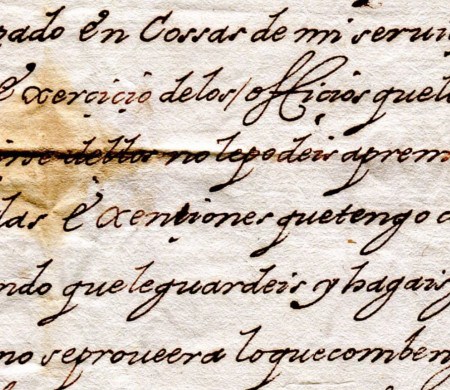 pado en Cossas de mi servi
exerçiçio de los officios que l
irse dellos no le podeis aprem
las exençiones que tengo
ndo que le guardeis y hagais
no se proveera lo que comben